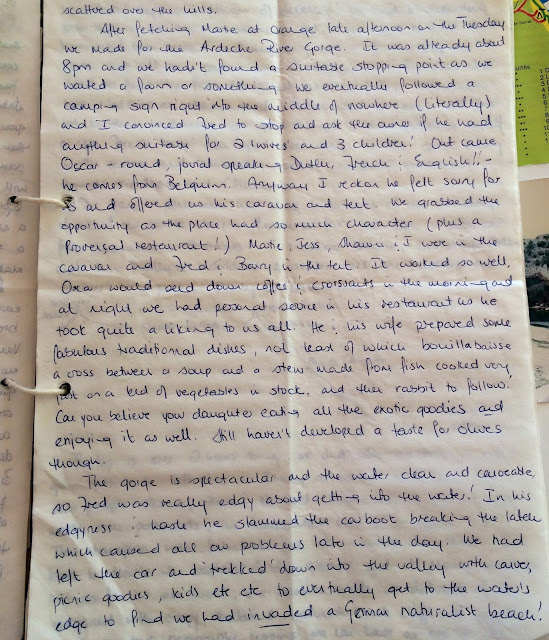 scattered over the hills.
After fetching Marie at Orange late afternoon on the Tuesday
we made for the Ardeche River Gorge. It was already about
8pm and we hadn't found a suitable stopping point as we
wanted a farm or something. We eventually followed a
camping sign right into the middle of nowhere (literally)
and I convinced Fred to stop and ask the owner if he had
anything suitable for 2 wives and 3 children! Out came
Oscar - round, jovial speaking Dutch, French & English!! -
he comes from Belguim. Anyway I reckon he felt sorry for
us and offered us his caravan and tent. We grabbed the
opportunity as the place had so much character (plus a
Provençal restaurant!) Marie, Jess, Shawn & I were in the
caravan and Fred & Barry in the tent. It worked so well,
Oscar would send down coffee & croissants in the morning and
at night we had personal service in his restaurant as he
took quite a liking to us all. He & his wife prepared some
fabulous traditional dishes, not least of which bouillabaisse
a cross between a soup and a stew made from fish cooked very
fast on a bed of vegetables in stock, and then rabbit to follow.
Can you believe your daughter eating all the exotic goodies and
enjoying it as well. Still haven't developed a taste for olives
though.
The gorge is spectacular and the water clear and canoeable,
so Fred was really edgy about getting into the water! In his
edgyness & haste he slammed the car boot breaking the latch
which caused all our problems late in the day. We had
left the car and trekked down into the valley with canoe,
picnic goodies, kids etc etc to eventually get to the water's
edge to find we had invaded a German naturalist beach!